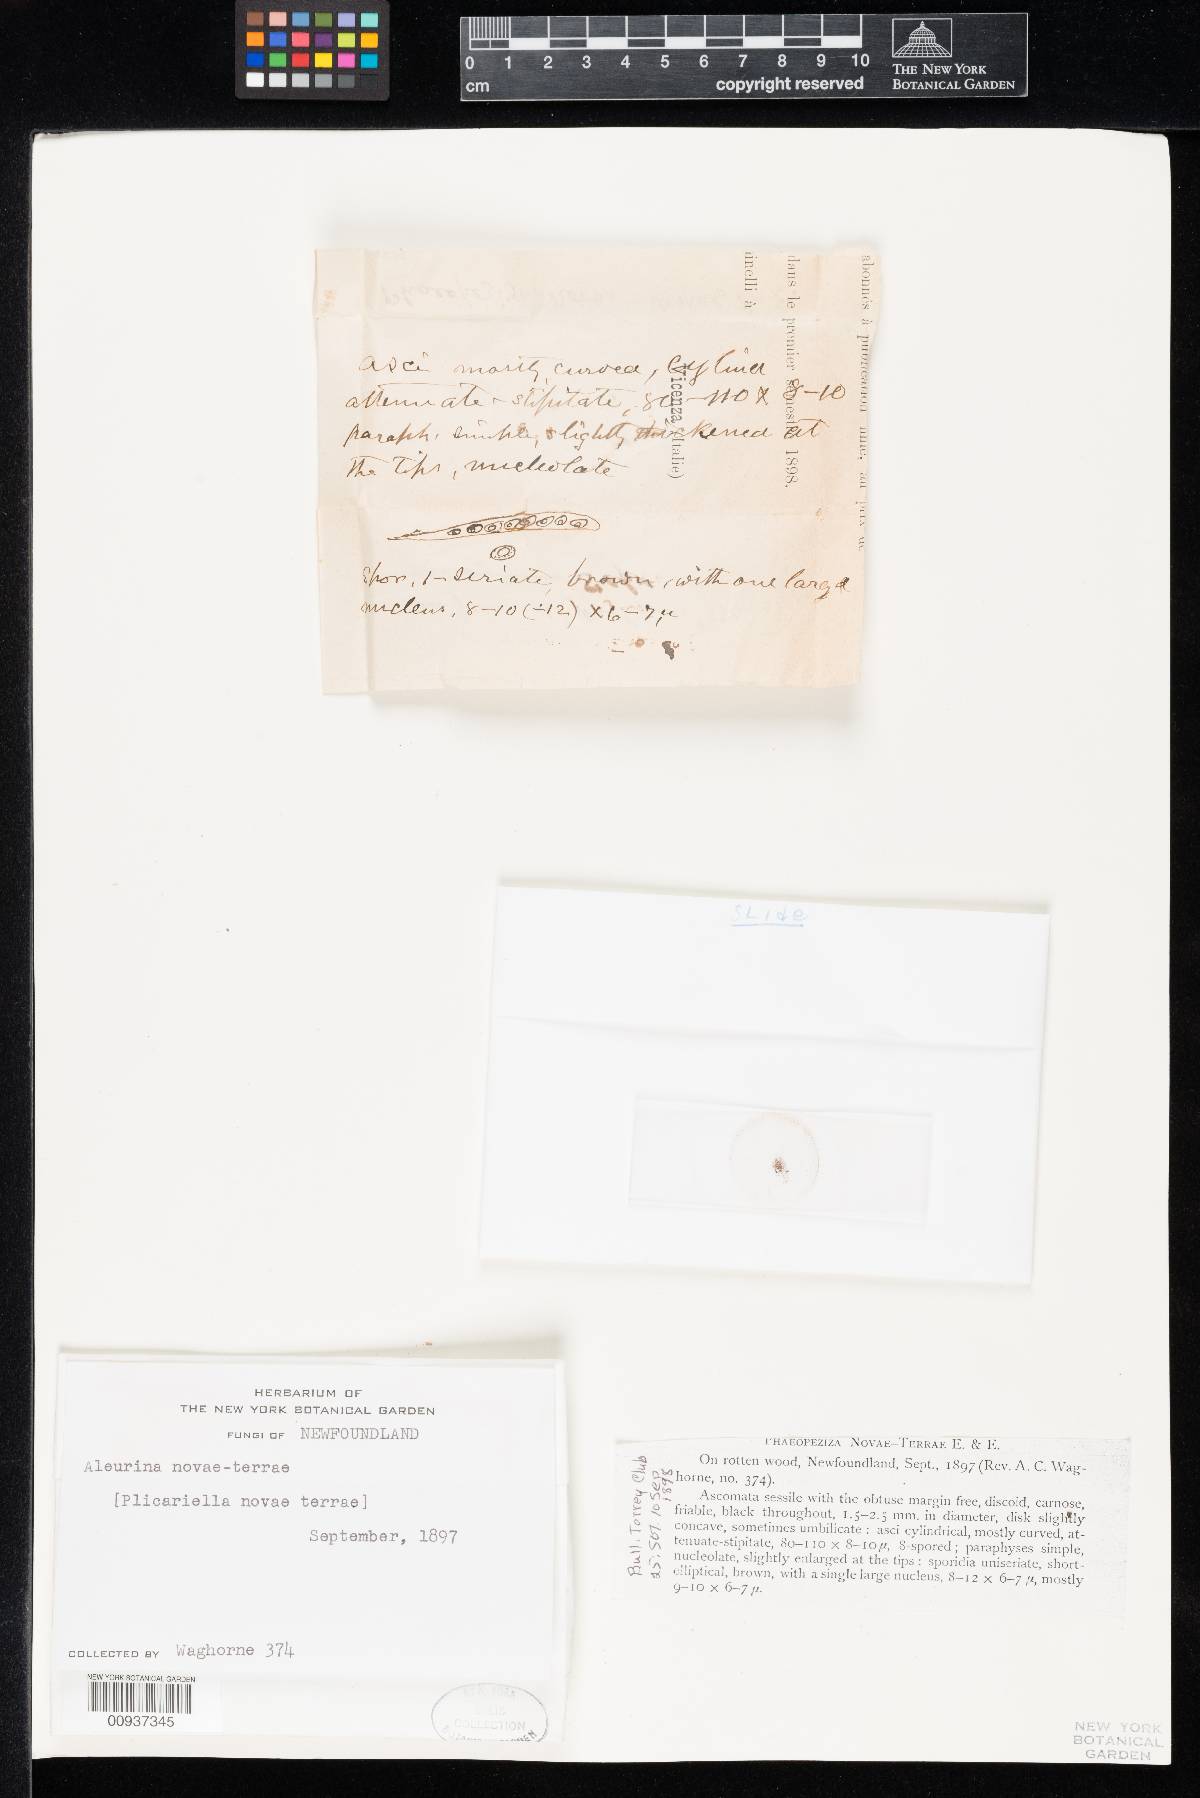 0 1 2 3 4 5 6 7 8 9 10
cm
copyright reserved
THE NEW YORK
BOTANICAL GARDEN
inelli à
dans le premier semestre 1898.
Vicenza (Italie)
Asci mostly curved, Cylind
attenuate-stipitate, 80-110 x 8-10
paraph. simple, slightly thickened at
the tips, nucleolate
Spor. 1-seriate, brown, with one large
nucleus, 8-10 (-12) x 6-7 µ
SLide
HERBARIUM OF
THE NEW YORK BOTANICAL GARDEN
FUNGI OF NEWFOUNDLAND
Aleurina novae-terrae
[Plicariella novae terrae]
September, 1897
COLLECTED BY Waghorne 374
NEW YORK BOTANICAL GARDEN
00937345
COLLECTION
Bull. Torrey Club
25:507. 10 Sep
1898
PHAEOPEZIZA NOVAE-TERRAE E. & E.
On rotten wood, Newfoundland, Sept., 1897 (Rev. A. C. Wag-
horne, no. 374).
Ascomata sessile with the obtuse margin free, discoid, carnose,
friable, black throughout, 1.5-2.5 mm. in diameter, disk slightly
concave, sometimes umbilicate : asci cylindrical, mostly curved, at-
tenuate-stipitate, 80-110 x 8-10 µ, 8-spored ; paraphyses simple,
nucleolate, slightly enlarged at the tips : sporidia uniseriate, short-
elliptical, brown, with a single large nucleus, 8-12 x 6-7 µ, mostly
9-10 x 6-7 µ.
NEW YORK
BOTANICAL
GARDEN